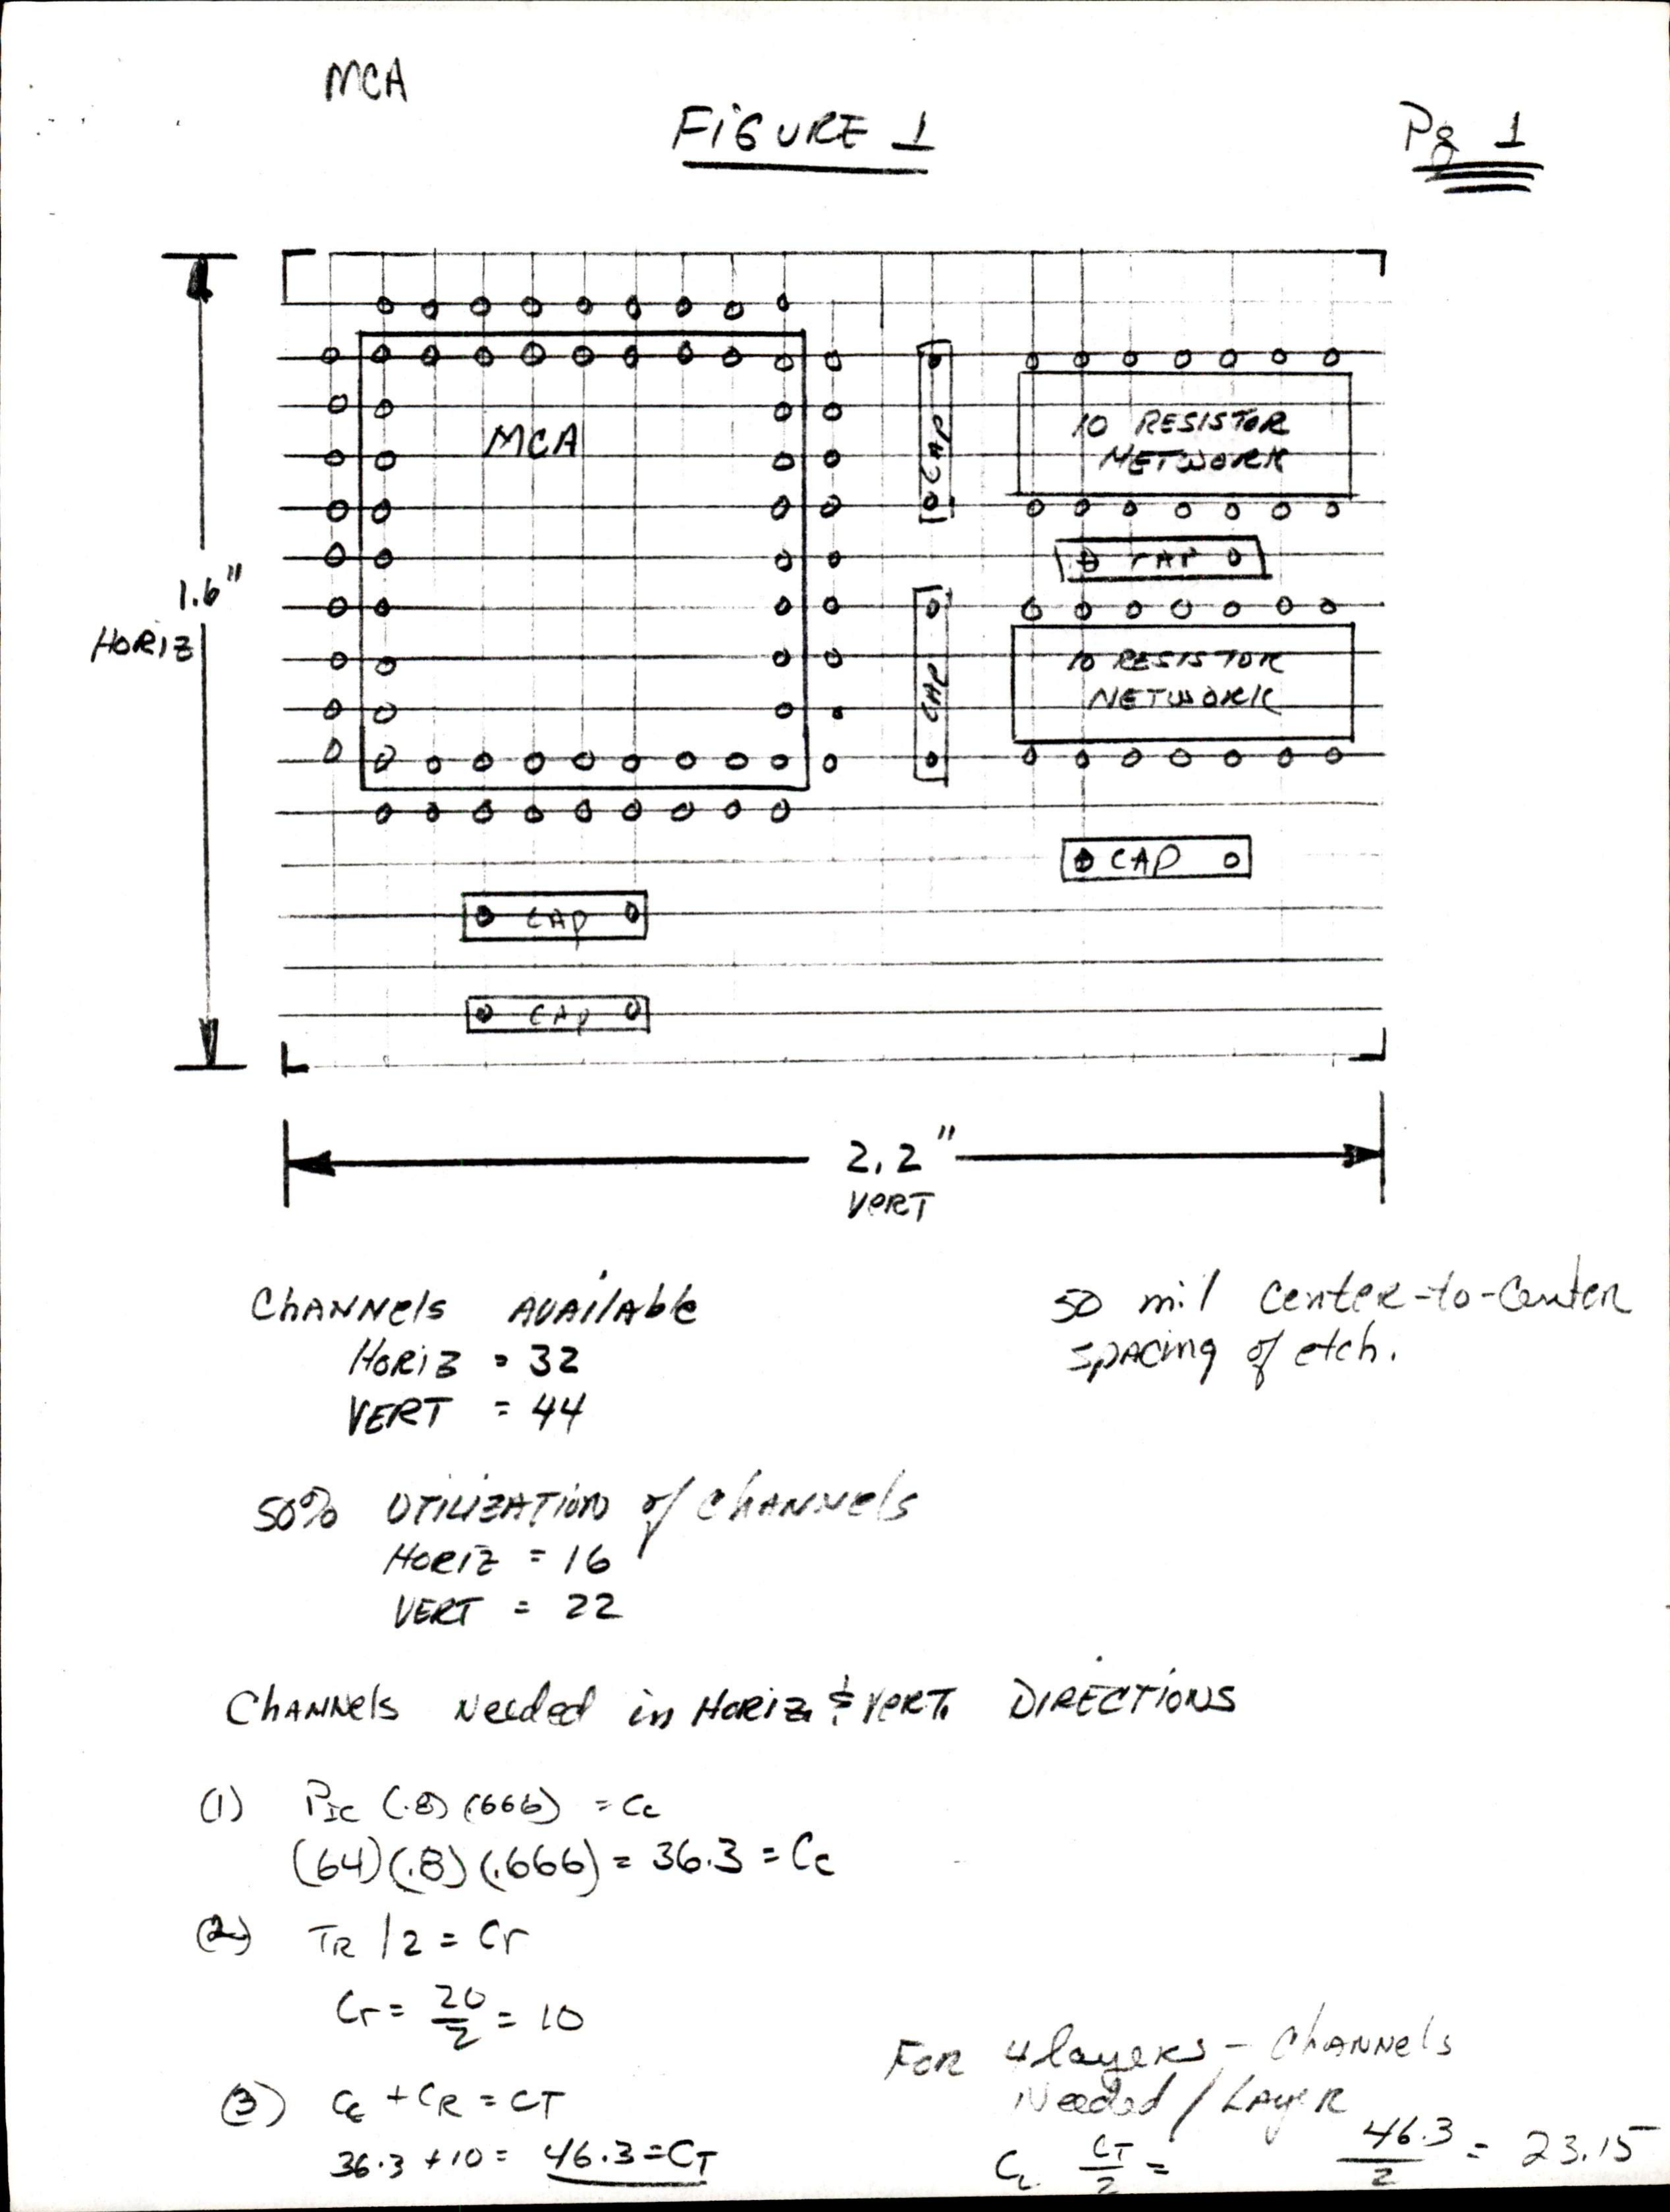 MCA
FIGURE 1
Pg 1
MCA
CAP
10 RESISTOR
NETWORK
CAP
1.6"
HORIZ
CAP
10 RESISTOR
NETWORK
CAP
CAP
CAP
2.2"
VERT
CHANNels AVAilAblE
HORIZ = 32
VERT = 44
50 mil center-to-center
spacing of etch.
50% UTILIZATION of CHANNels
HORIZ = 16
VERT = 22
CHANNels Needed in HORIZ. & VERT. DIRECTIONS
(1) PIC (.8) (.666) = Cc
(64)(.8)(.666) = 36.3 = Cc
(2) TR / 2 = Cr
Cr = 20/2 = 10
(3) Cc + CR = CT
36.3 + 10 = 46.3 = CT
FOR 4 layers - CHANNels
Needed / LAyeR
CL CT/2 = 46.3/2 = 23.15